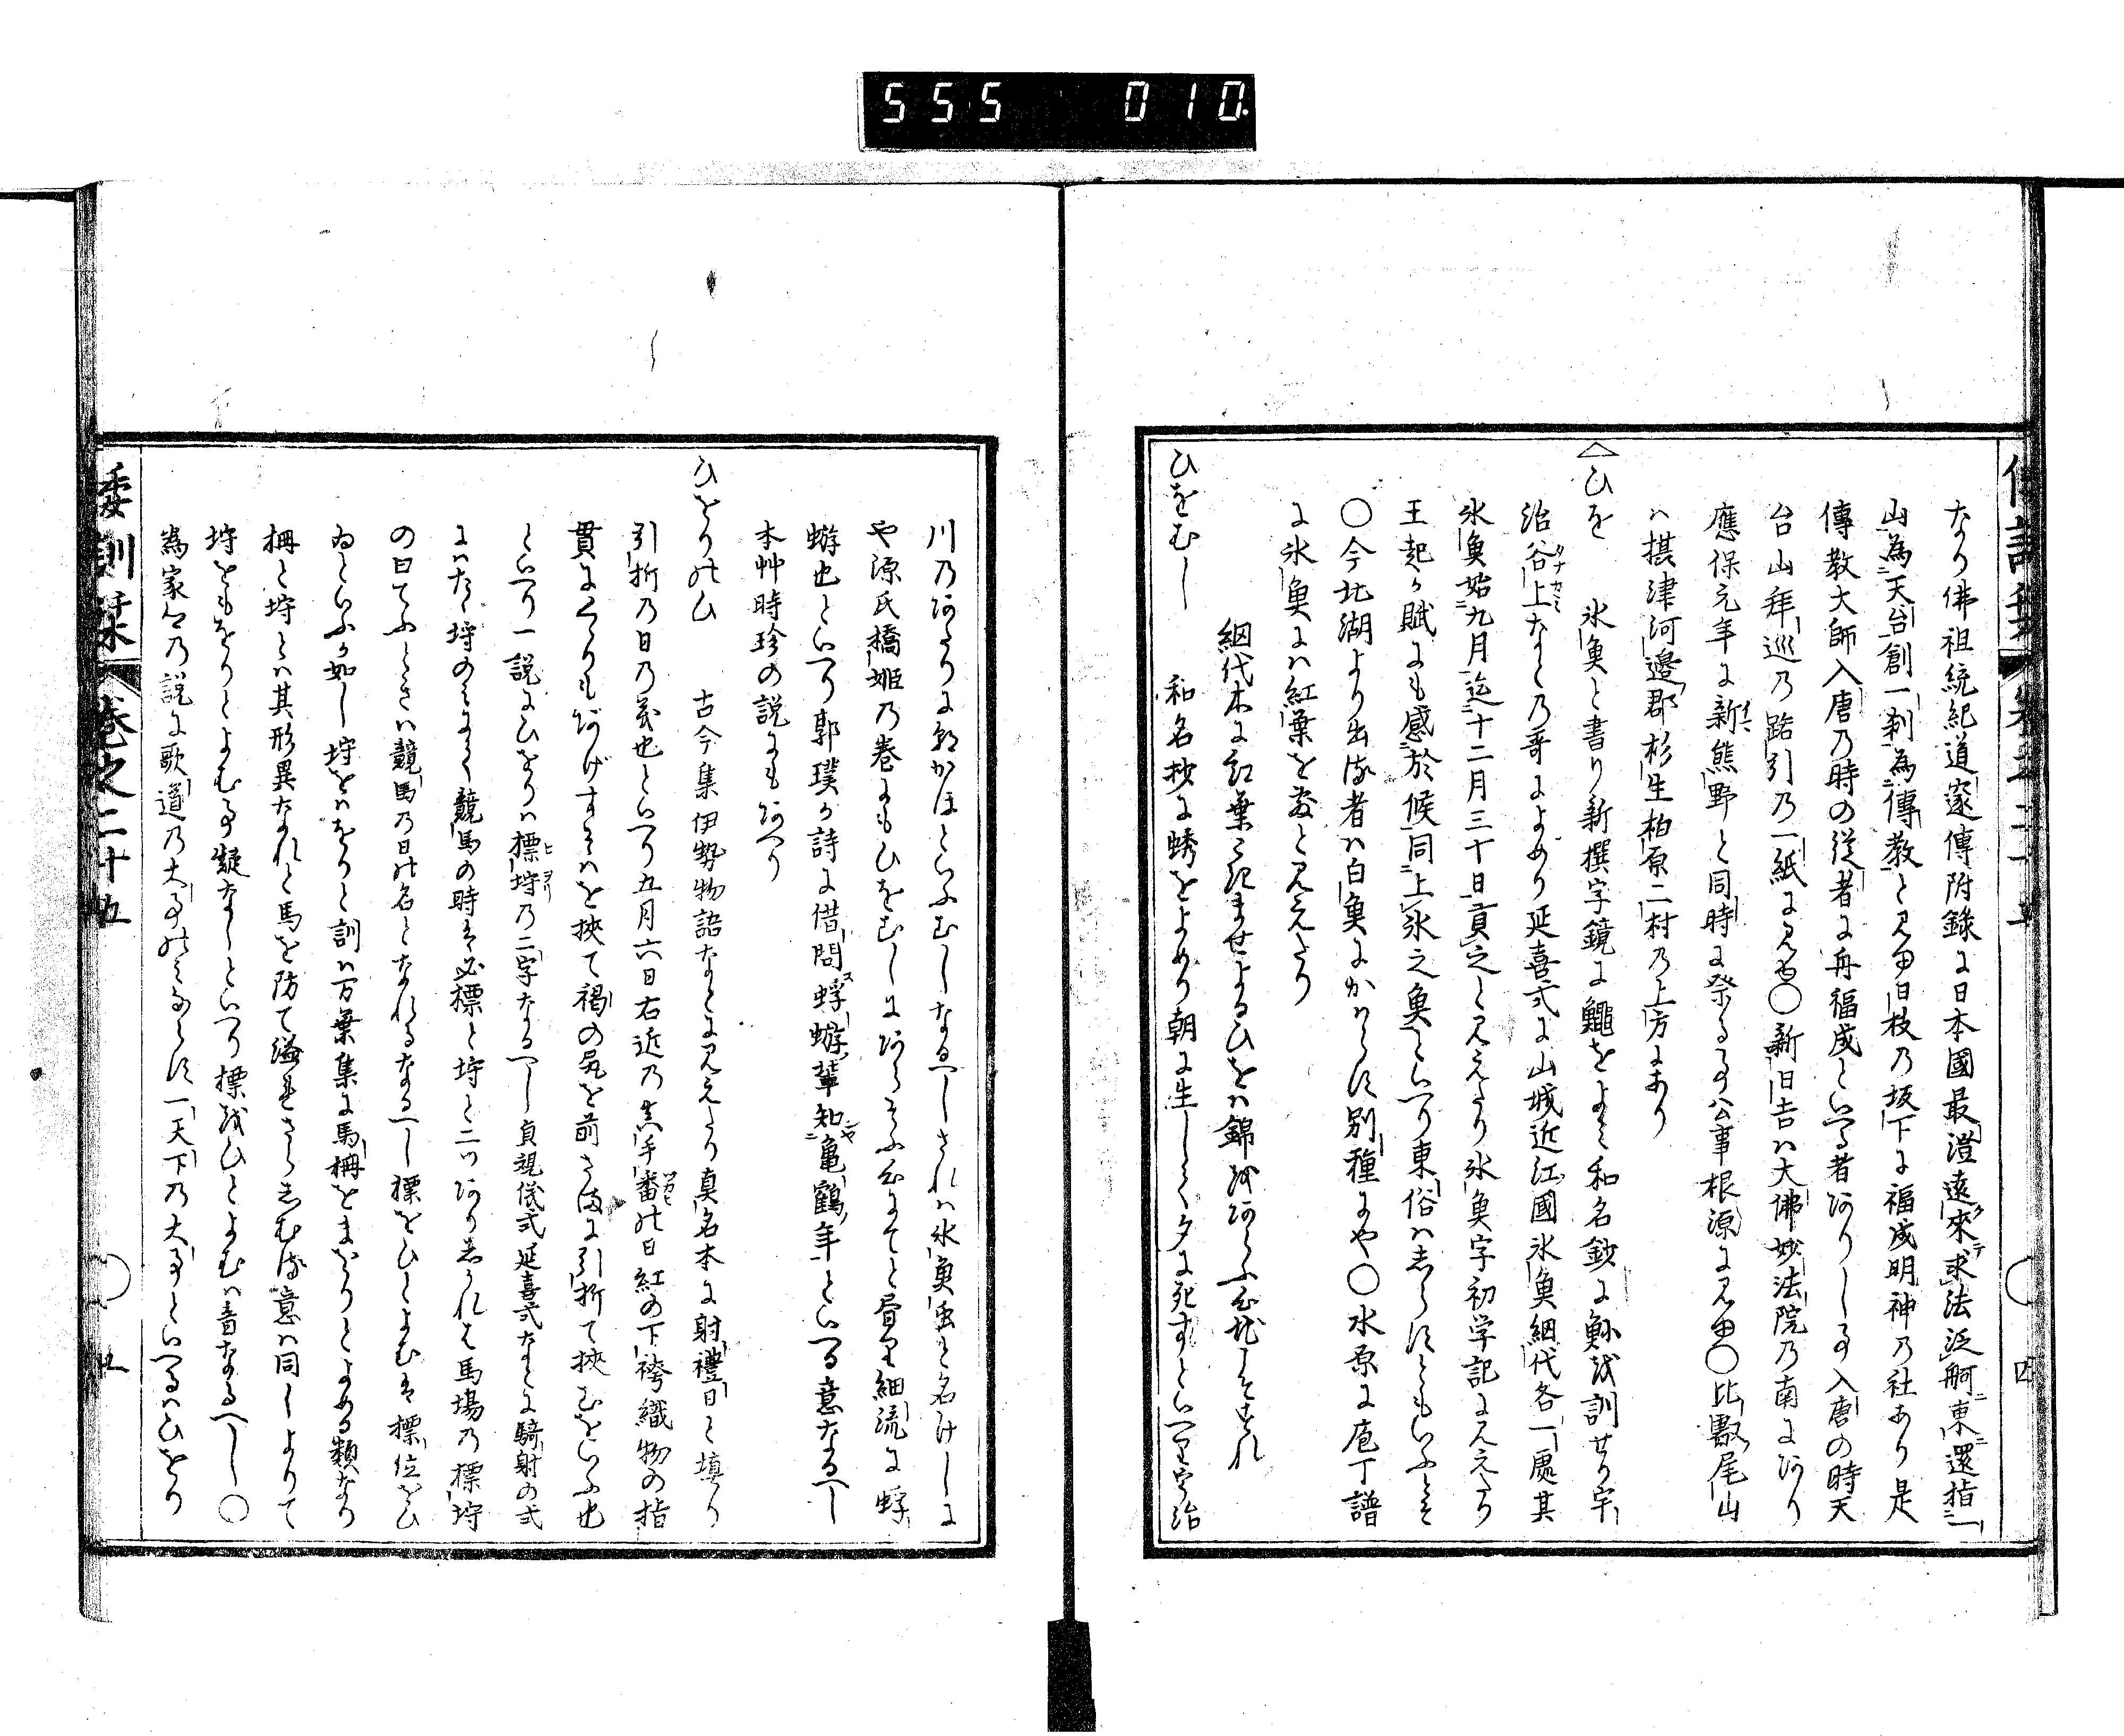 555 010
なり佛祖統紀道邃傳附錄に日本國最澄遠來求法泛舸東還指一
山為天台創一刹為傳教と見ゆ日枝乃坂下に福成明神乃社あり是
傳教大師入唐乃時の從者に舟福成といへる者ありし事入唐の時天
台山拜巡乃路引乃一紙に見ゆ〇新日吉ハ大佛妙法院乃南にあり
應保元年に新熊野と同時に祭る事公事根源に見ゆ〇比叡尾山
ハ摂津河邊郡杉生柏原二村乃上方にあり
△ひを 氷魚と書り新撰字鏡に䱴をよみ和名鈔に𩵖を訓せり宇
治谷上なとの哥によめり延喜式に山城近江國氷魚網代各一處其
氷魚始九月迄十二月三十日貢之と見えたり氷魚字初学記に見えたり
王起か賦にも感於候同上氷之魚といへり東俗ハしらすともいふとそ
〇今北湖より出る者ハ白魚にかハらす別種にや〇水原に庖丁譜
に氷魚にハ紅葉を敷と見えたり
網代木に紅葉こきませよるひをハ錦をあらふ心地こそすれ
ひをむし 和名抄に蜏をよめり朝に生し夕に死すといへり宇治
川乃あたりにあかほといふむしなるへしされハ氷魚虫と名けしに
や源氏橋姫乃巻にもひをむしにあらそふ心にてと見ゆ細流に蜉
蝣也といへり郭璞か詩に借問蜉蝣輩知亀鶴年といへる意なるへし
本艸時珍の説にもあへり
ひをりのひ 古今集伊勢物語なとに見えたり真名本に射禮日と填り
引折乃日乃義也といへり五月六日右近乃真手番の日紅の下袴織物の指
貫にくゝりもあげすそハを挾て褐の尻を前さまに引折て挾むをいふ也
といへり一説にひをりハ標埒乃二字なるへし貞観儀式延喜式なとに騎射の式
にハたゝ埒のみにて競馬の時そ必標と埒と二ツありされと馬場乃標埒
の日てふことハ競馬乃日の名となれるなるへし標をひとよむそ標位をひ
ゐといふか如し埒をハをりと訓ハ万葉集に馬柵をまをりとよめる類なり
柵と埒とハ其形異なれと馬を防て溢さらしむる意ハ同しよりて
埒をもをりとよむ事疑なしといへり標をひとよむハ音なるへし〇
為家卿乃説に歌道乃大事のみならす一天下乃大事といへるハひをり
倭訓栞 巻之二十五 五